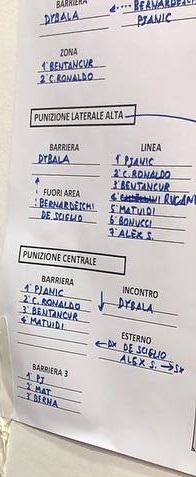 BARRIERA
DYBALA
BERNARDESCHI
PJANIC
ZONA
1° BENTANCUR
2° C. RONALDO
PUNIZIONE LATERALE ALTA
BARRIERA
DYBALA
FUORI AREA
BERNARDESCHI
DE SCIGLIO
LINEA
1° PJANIC
2° C. RONALDO
3° BENTANCUR
4° RUGANI
5° MATUIDI
6° BONUCCI
7° ALEX S.
PUNIZIONE CENTRALE
BARRIERA
1° PJANIC
2° C. RONALDO
3° BENTANCUR
4° MATUIDI
INCONTRO
DYBALA
ESTERNO
DX DE SCIGLIO
ALEX S. → SX
BARRIERA 3
1° PJ
2° MAT
3° BERNA